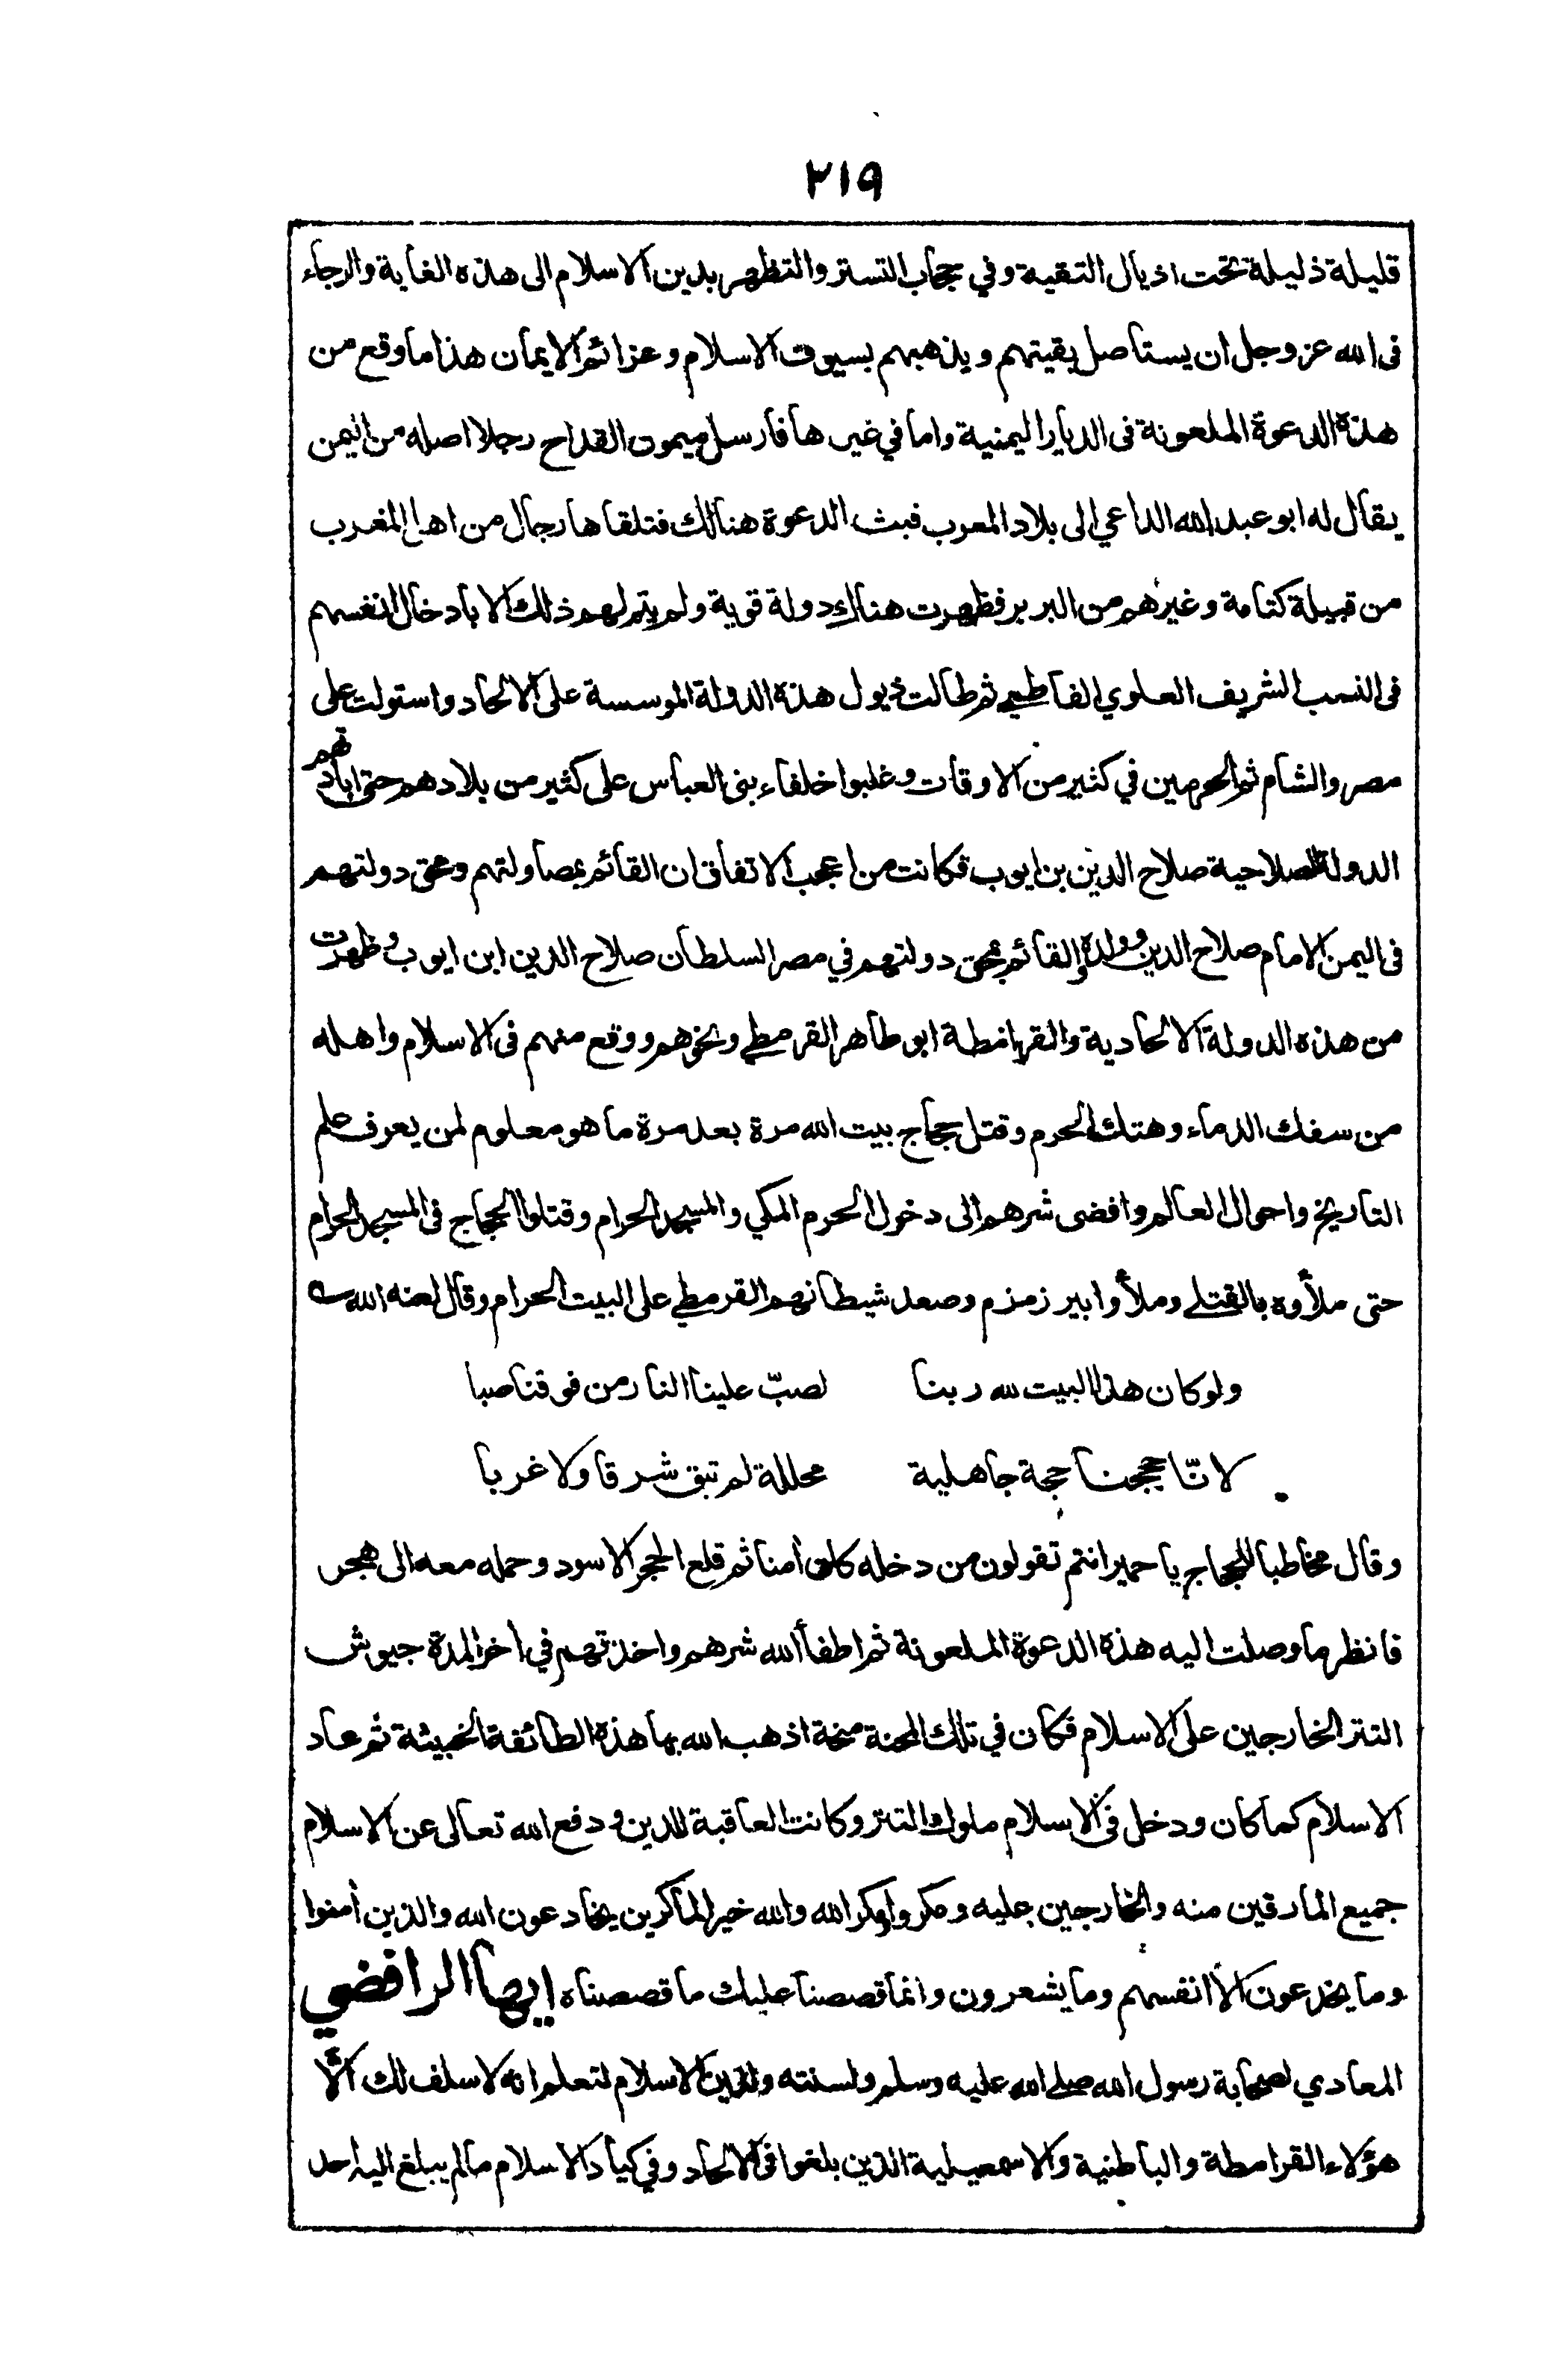 ٢١٩
قليلة ذليلة تحت اذيال التقية وفي حجاب التستر والتظهر بدين الاسلام الى هذه الغاية والرجاء
فى الله عز وجل ان يستاصل بقيتهم ويذهبهم بسيوف الاسلام وعزائم الايمان هذا ما وقع من
هذه الدعوة الملعونة فى الديار اليمنية واما في غيرها فارسل ميمون القداح رجلا اصله من اليمن
يقال له ابو عبد الله الداعي الى بلاد المعرب فبث الدعوة هنالك فتلقاها رجال من اهل المغرب
من قبيلة كتامة وغيرهم من البربر فظهرت هناك دولة قوية ولم يتم لهم ذلك الا بادخال انفسهم
فى النسب الشريف العلوي الفاطمي ثم طالت ذيول هذه الدولة الموسسة على الالحاد واستولت على
مصر والشام ثم الحرمين في كثير من الاوقات وغلبوا خلفاء بنى العباس على كثير من بلادهم حتى ابادتهم
الدولة الصلاحية صلاح الدين بن ايوب فكانت من اعجب الاتفاق ان القائم بمصاولتهم ومحق دولتهم
فى اليمن الامام صلاح الدين وولده والقائم بمحق دولتهم في مصر السلطان صلاح الدين ابن ايوب وظهرت
من هذه الدولة الالحادية والقرامطة ابو طاهر القرمطي ونحوهم ووقع منهم فى الاسلام واهله
من سفك الدماء وهتك الحرم وقتل حجاج بيت الله مرة بعد مرة ما هو معلوم لمن يعرف علم
التاريخ واحوال العالم وافضى شرهم الى دخول الحرم المكي والمسجد الحرام وقتلوا الحجاج فى المسجد الحرام
حتى ملأوه بالقتلى وملأوا بير زمزم وصعد شيطانهم القرمطي على البيت الحرام وقال لعنه الله
ولو كان هذا البيت لله ربنا لصبّ علينا النار من فوقنا صبا
لانّا حججنا حجة جاهلية محللة لم تبق شرقا ولا غربا
وقال مخاطبا للحجاج يا حمير انتم تقولون من دخله كان أمنا ثم قلع الحجر الاسود وحمله معه الى هجر
فانظر ما وصلت اليه هذه الدعوة الملعونة ثم اطفأ الله شرهم واخذتهم في أخر المدة جيوش
التتر الخارجين على الاسلام فكان في تلك المحنة منحة اذهب الله بها هذه الطائفة الخبيثة ثم عاد
الاسلام كما كان ودخل فى الاسلام ملوك التتر وكانت العاقبة للدين ودفع الله تعالى عن الاسلام
جميع المارقين منه والخارجين عليه ومكروا ومكر الله والله خير الماكرين يخادعون الله والذين أمنوا
وما يخدعون الا انفسهم وما يشعرون وانما قصصنا عليك ما قصصناه ايها الرافضي
المعادي لصحابة رسول الله صلى الله عليه وسلم ولسنته ولدين الاسلام لتعلم انه لا سلف لك الّا
هؤلاء القرامطة والباطنية والاسمعيلية الذين بلغوا فى الالحاد وفي كياد الاسلام ما لم يبلغ اليه احد